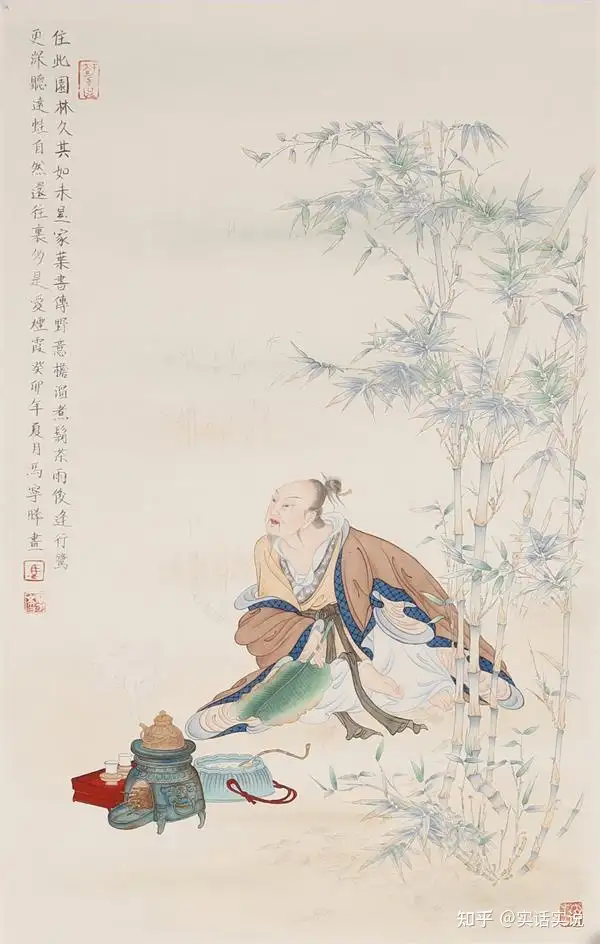 住此園林久其如未是家葉書傳野意檐溜煮鬍茶雨後逢行鷺
更深聽遠蛙自然還往裏多是愛煙霞癸卯年夏月馬寧晞畫
知乎 @实话实说